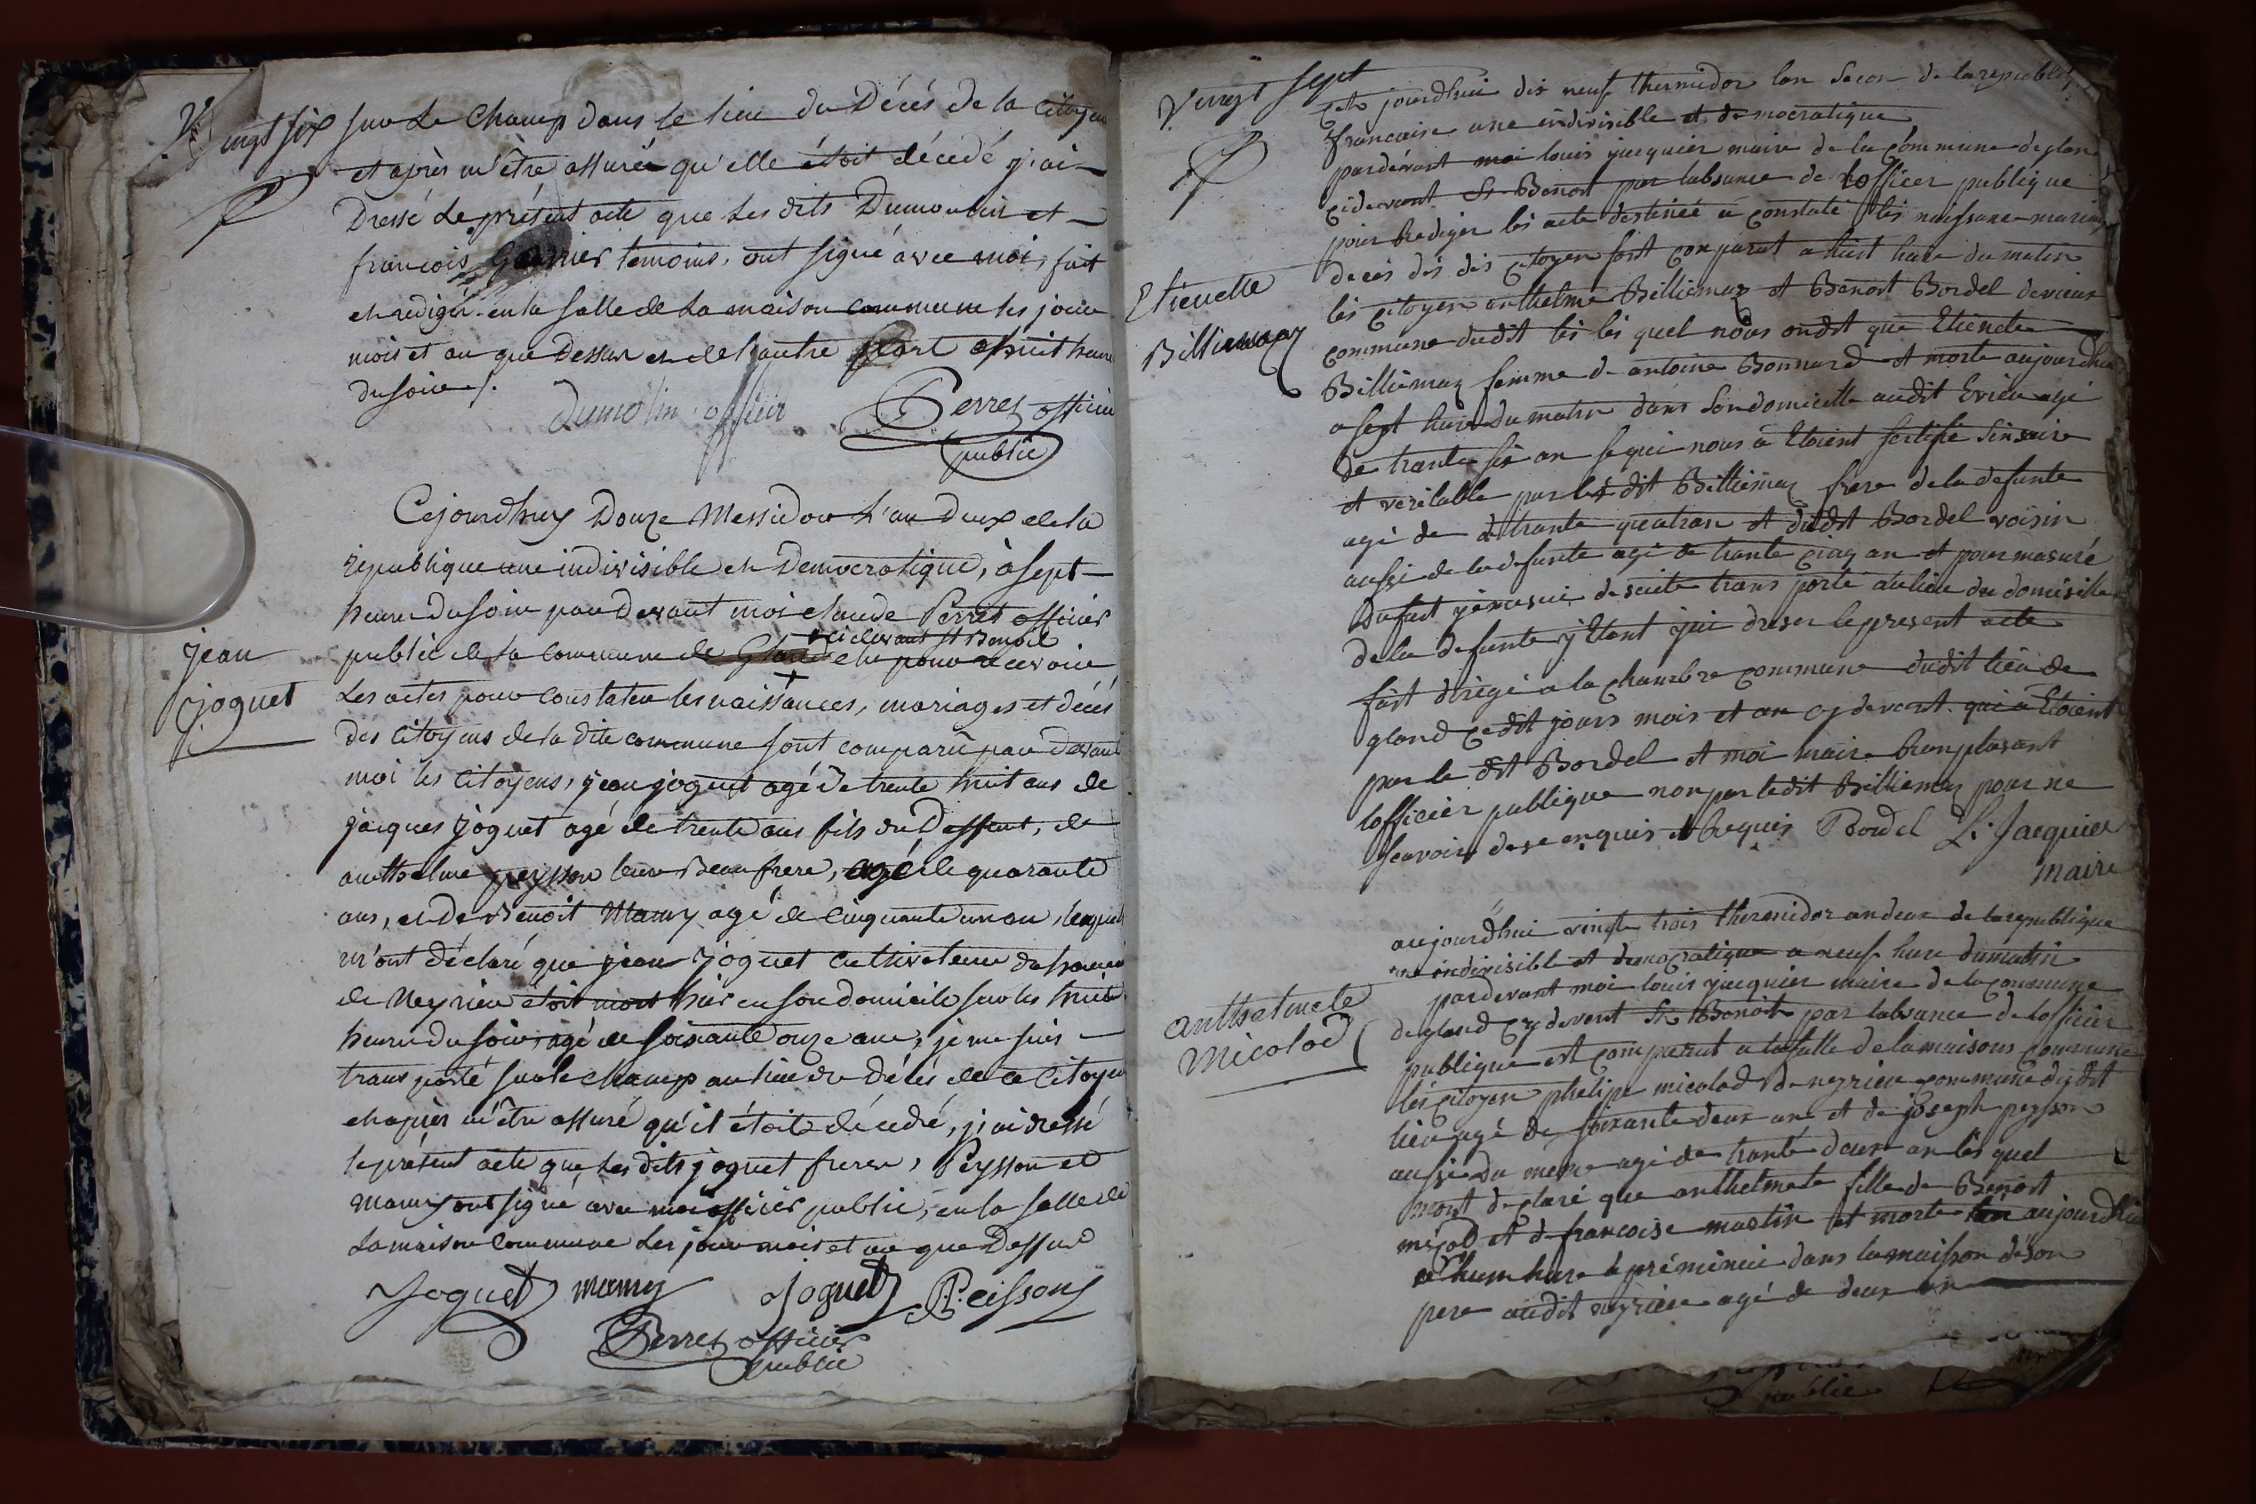 Vingt six
sur le champ dans le lieu du Décés de la Citoyen
et après m'être assurée qu'elle étoit décedé j'ai
Dressé le présent acte que les dits Dumoulin et
françois garnier temoins, ont signé avec moi, fait
et redigé en la salle de la maison commune les jour
mois et an que dessus et de l'autre part à huit heure
du soir /.
Dumolin officier Perret officier
public
jean
joguet
Cejourdhuy Douze Messidor L'an Deux de la
republique une indivisible et Democratique, à sept
heure du soir par devant moi claude Perret officier
ci devant st Benoit
public de la commune de Gland elu pour recevoir
Les actes pour constater les naissances, mariages et décés
des Citoyens de la dite commune sont comparû par devant
moi les Citoyens, jean joguet agé de trente huit ans de
jacques joguet agé de trente ans fils du Deffunt, de
anthelme peysson leur Beaufrere, agé de quarante
ans, et de Benoit Mamy agé de cinquante un an, lesquels
m'ont déclaré que jean joguet cultivateur
de Neyrieu étoit mort hier en son domicile sur les huit
heure du soir, agé de soixante onze ans, je me suis
transporté sur le champ au lieu du décés de ce Citoyen
et après m'être assuré qu'il étoit décedé, j'ai dressé
le présent acte que les dits joguet freres, Peysson et
mamy ont signé avec moi officier public, en la salle de
la maison commune les jour mois et an que Dessus
Joguet mamy Joguet Peissons
Perret officier
public
Vingt sept
Cejourdhui dix neuf thermidor lan secon de la republiq
francaise une indivisible et democratique
pardevant moi louis jacquier maire de la commune de glan
cidevant St Benoit par labsance de lofficer publique
pour bredigér les acte destinéé a constaté les naissane mariag
deces des dis citoyen sont conparut a huit hure du matin
Etienette
Billiemaz
les citoyen anthelme Billiemaz et Benoit Bordel devrieux
commune dudit les les quel nous ondit que Etienete
Billiemaz femme de antoine Bonnard et morte aujourdhui
a sept hure du matin dans son domicille audit Evrieu agé
de trante six an se qui nous a Etoient sertifié sinsaire
et veritable par les dit Billiemaz frere de la defunte
agé de trante quatran et dudit Bordel voisin
aussi de la defunte agé de trante cinq an et pour masuré
du fait je me sui desuite trans porté au lieu du domisille
de la defunte y Etant jai dreser le present acte
fait dirégé a la chambre commune dudit lieu de
gland cedit jours mois et an cy devant qui a Etoient
par le dit Bordel et moi maire bremplasant
lofficiér publique non par ledit Billiemaz pour ne
scavoir de se enquis et brequis Bordel L. Jacquier
maire
anthelmete
micolod
aujourdhui vingte trois thermidor an deux de la republique
une indivisible et democratique a neuf hure dumatin
pardevant moi louis jacquiér maire de la commune
de gland cy devent St Benoit par labsance de lofficier
publique est comparut a la salle de la maisons commune
lés citoyen phelipe micolod de neyrieu commune dudit
lieu agé de soixante deux ans et de joseph peyson
aussi du meme agé de trante deux an lés quel
mont declaré que anthelmete fille de Benoit
micod et de francoise martin et morte aujourdhui
a hune hure apréminui dans la maison de son
pere audit neyrieu agé de deux an
public